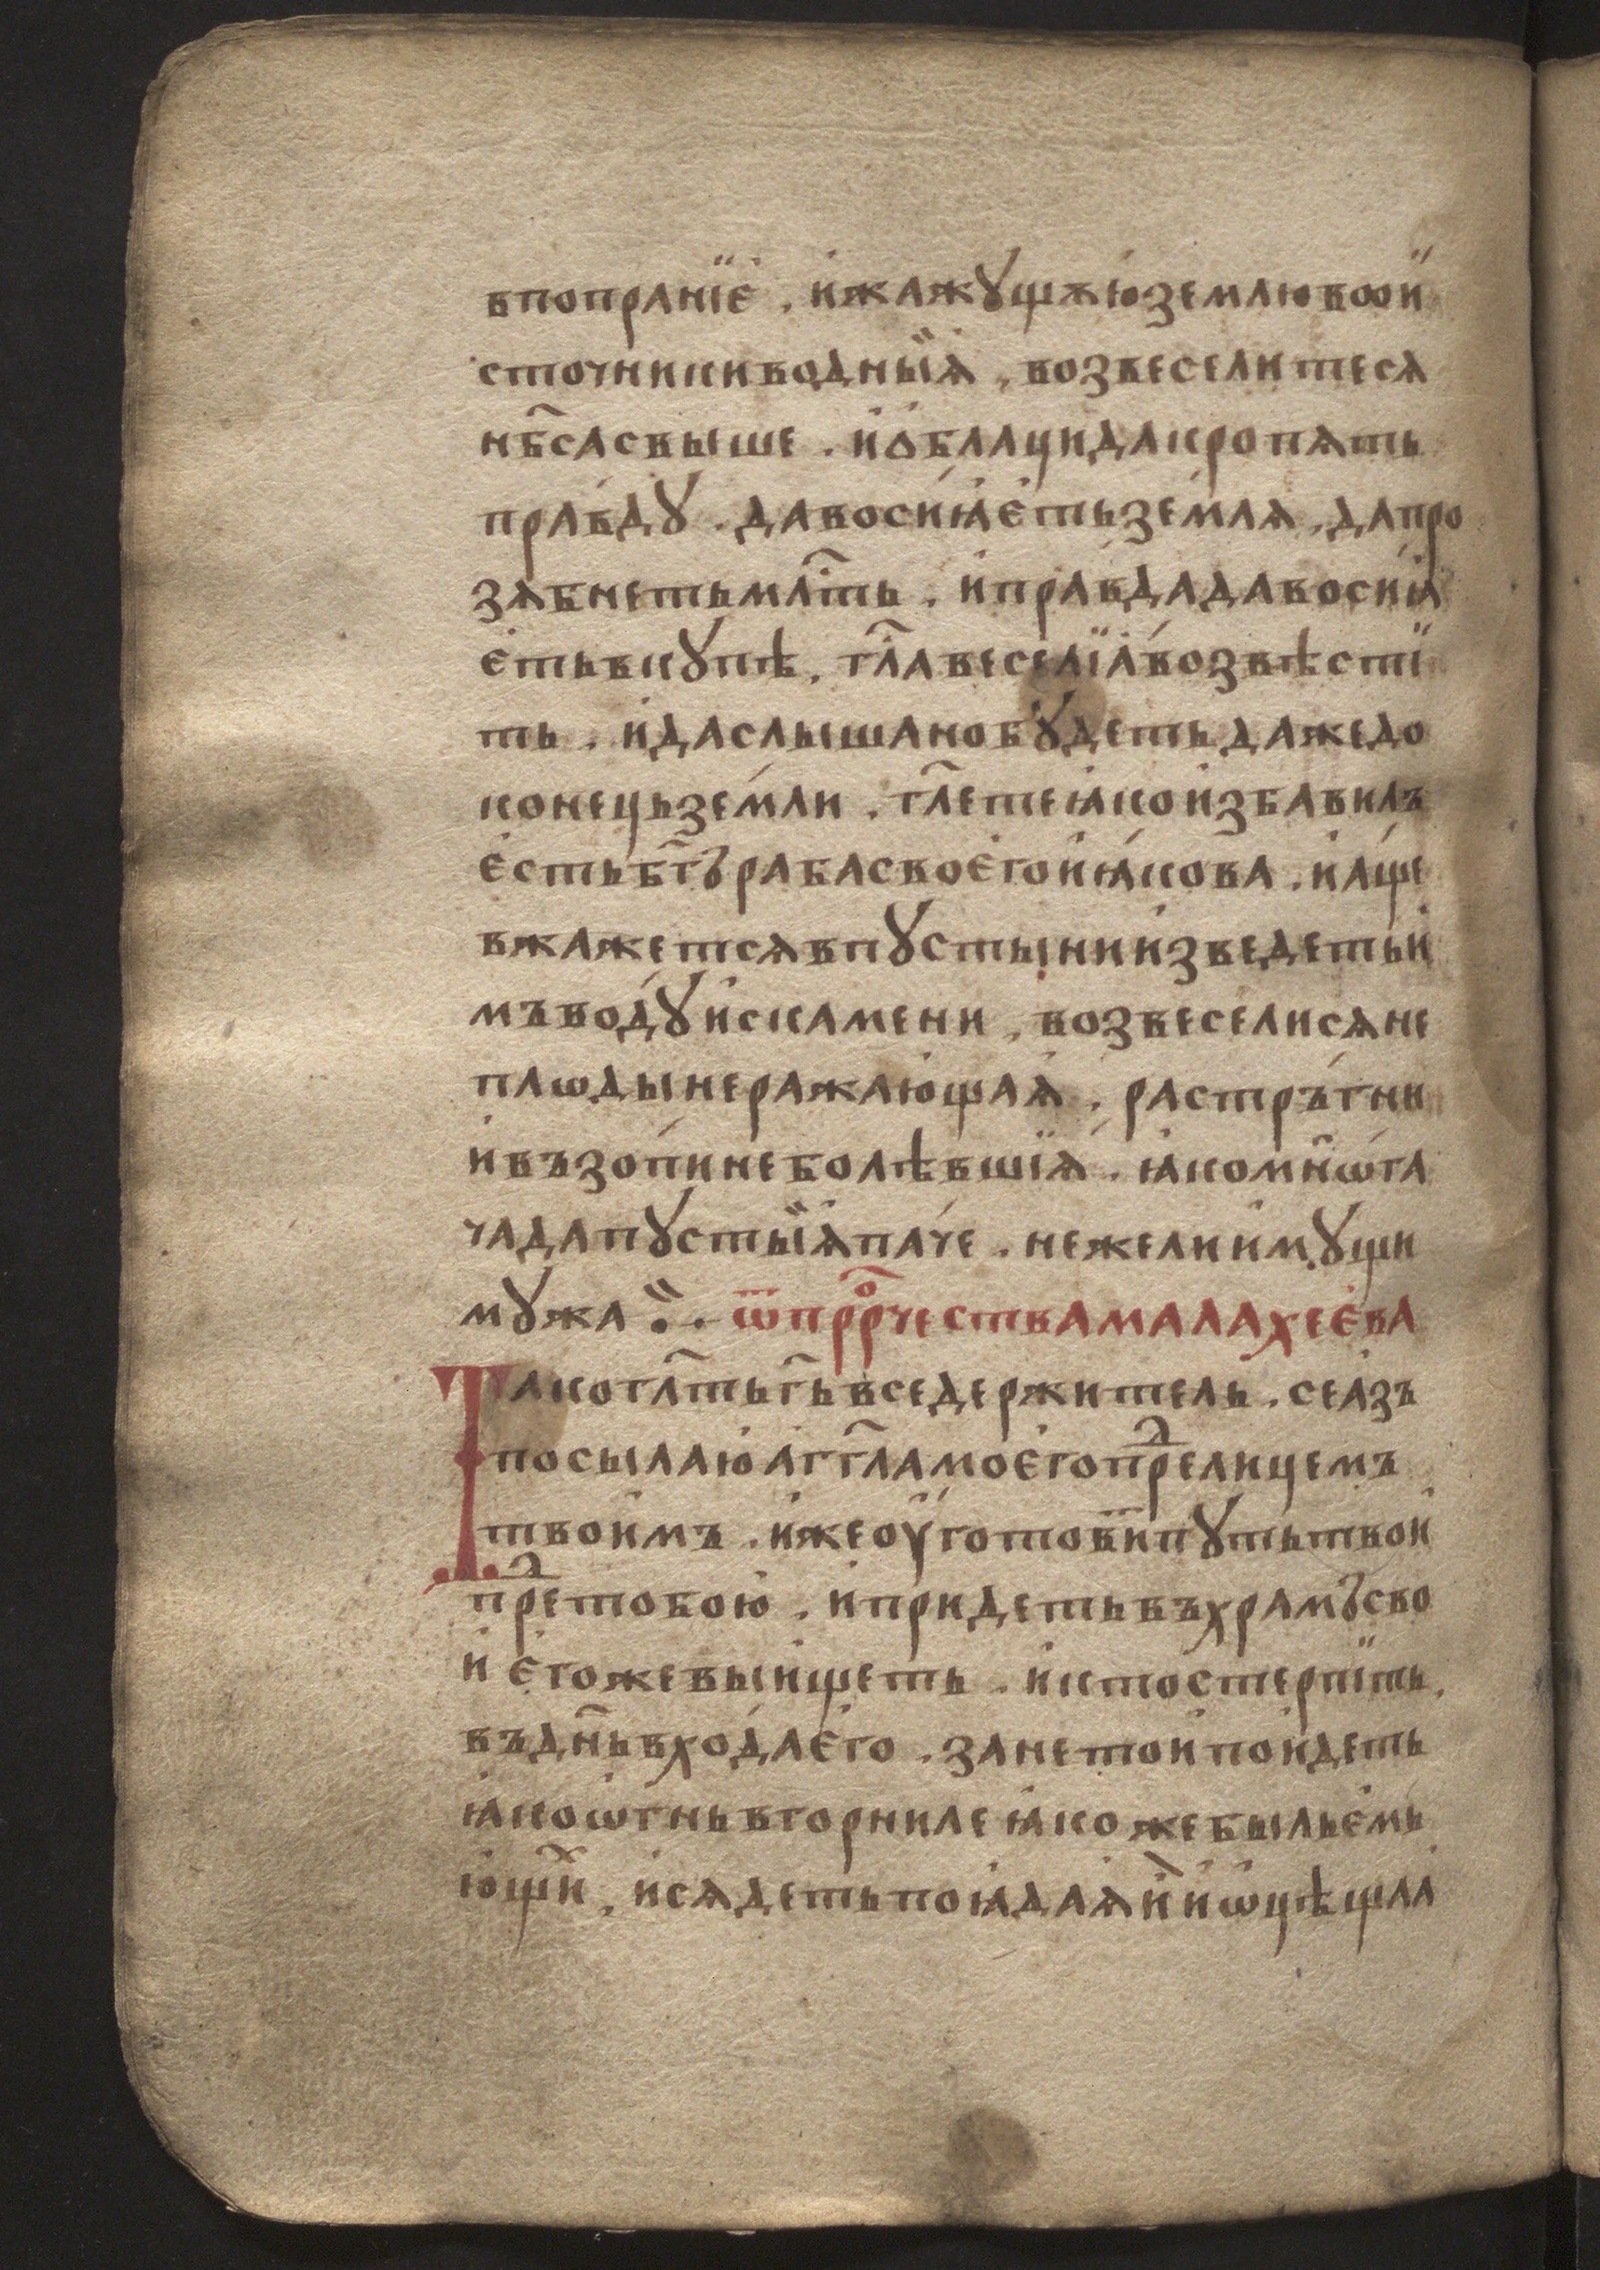 впопраниїе҆ . и҆жажꙋщѫю҆землювоѻи҆
сточникиводныѧ҆ . возвеселитесѧ
нб҃сасвыше . и҆ѻ҆блацидакропѧть
пра́вдꙋ . давосиꙗ҆е҆тьзе́млѧ . дапро
зѧбнетьмл҃ть . и҆пра́вдадавосиꙗ҆
е҆тьвкꙋпѣ . гл҃авеселїа҆возвѣстї
ть . и҆даслышанобꙋ́детьдаждедо
конецьземли . гл҃етеꙗ҆коизбавилъ
е҆стьбг҃ърабасвое҆гоиꙗ҆кова . иа҆ще
вжажетсѧвпꙋстынии҆зведетьи҆
мъводꙋи҆скамени . возвеселисѧне
плѡдынеражаю҆щаѧ҆ . растръгни
и҆възопи́неболѣвшїѧ҆ . ꙗ҆комнѡ҆га
чадапꙋстыѧ҆паче . нежелии҆мꙋщи
мꙋжа ⁘ ѿпрⷪ҇рчествамалахее҆ва
Такогл҃тьгь҃вседержитель . сеазъ
посылаю҆а҆гг҃ламое҆гопреⷣлицемъ
твои҆мъ . и҆жеоуготовип̾ꙋтьтвои҆
преⷣтобою҆ . и҆придетьвъхрамъсво
и҆ е҆гожевыи҆щеть . и҆ктостерпить .
въдн҃ьвхо́дае҆го . занетои҆пои҆деть
ꙗ҆коѡ҆гньвгорнилеꙗ҆кожебылье҆мы
ю҆щиⷯ . и҆сѧдетьпоꙗ҆даѧ҆и҆иѡ҆цѣщаа҆